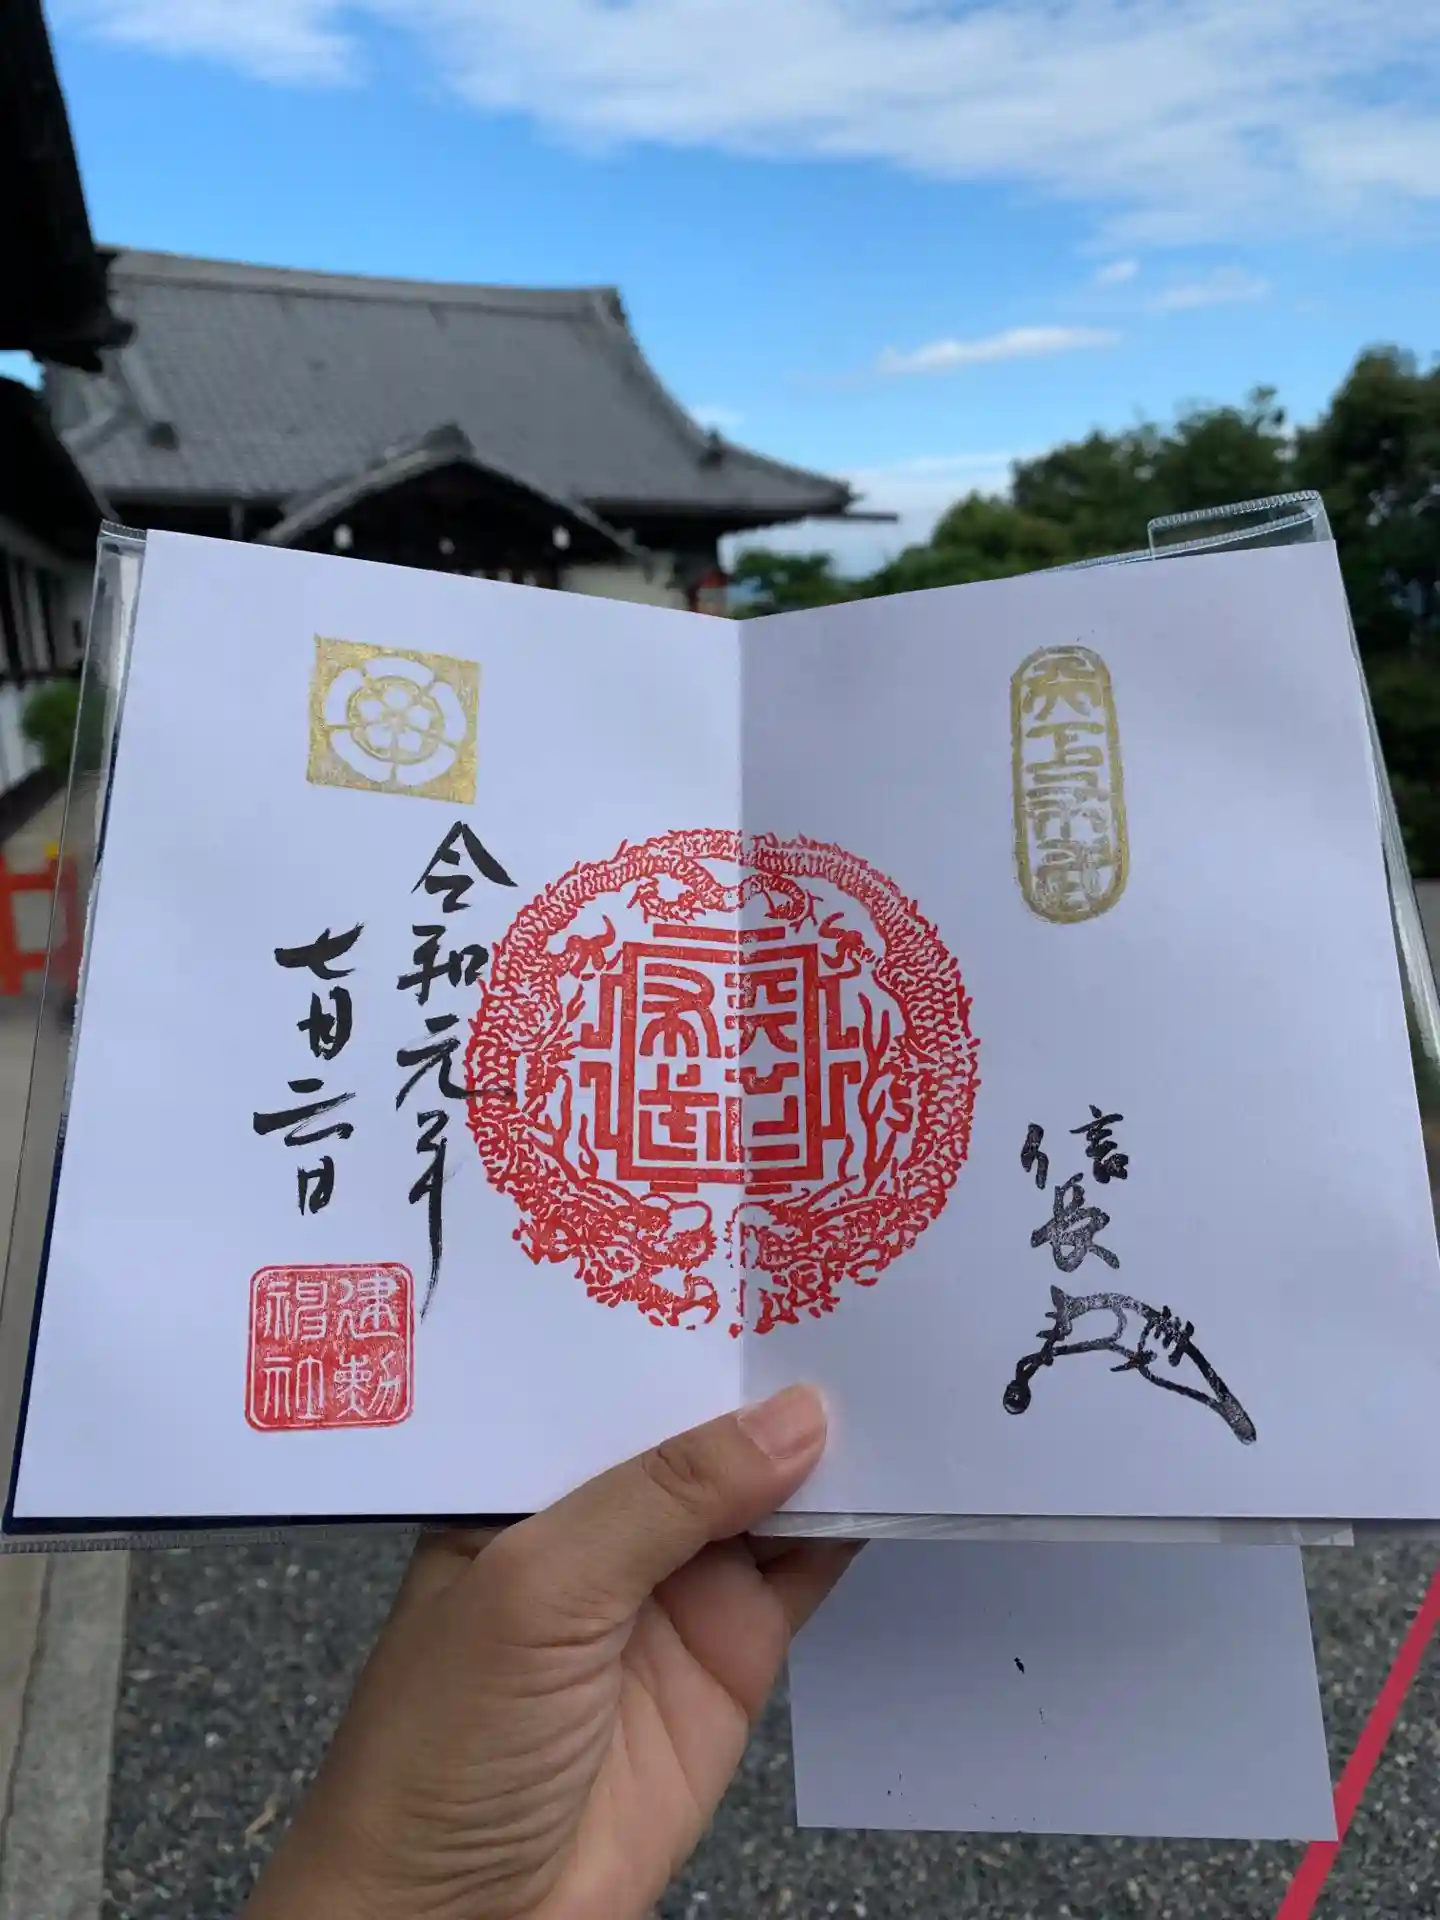 天下布武
信長
天下
布武
令和元年
七月二日
建勲
神社